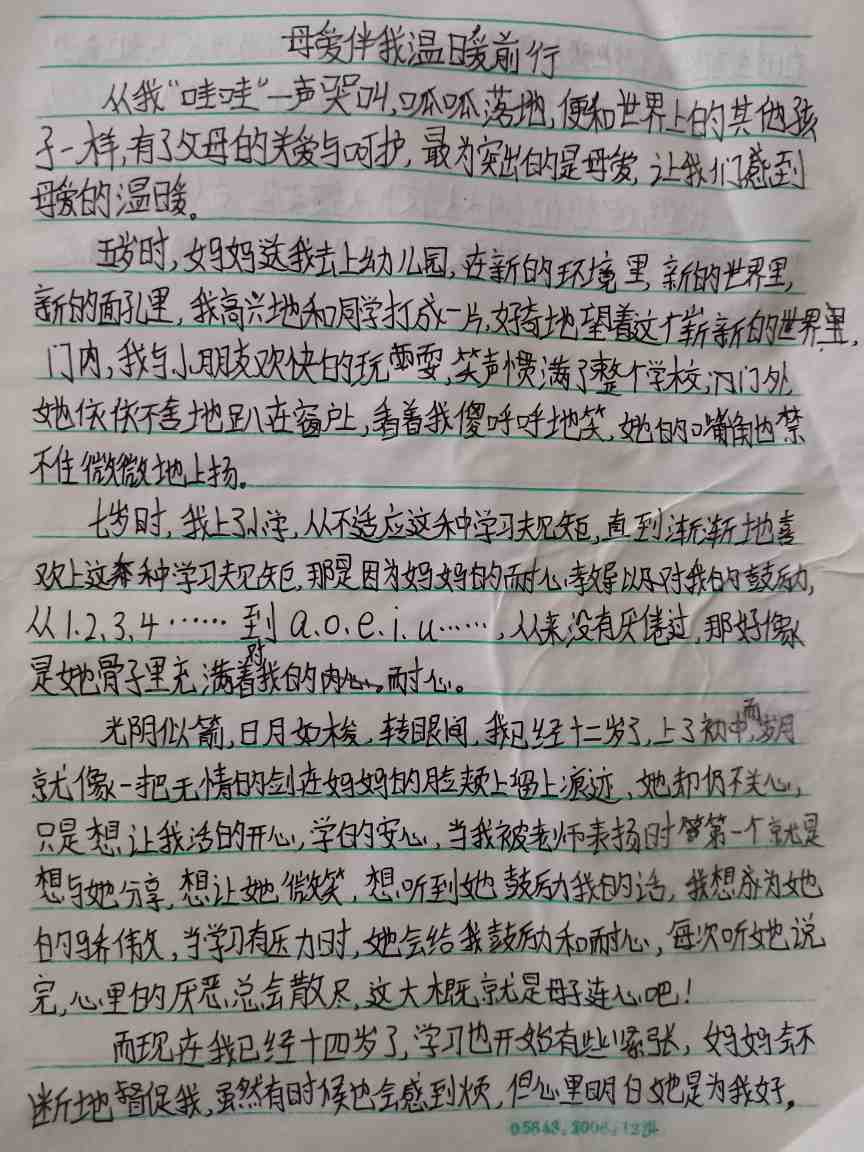 母爱伴我温暖前行
从我“哇哇”一声哭叫，呱呱落地，便和世界上的其他孩
子一样，有了父母的关爱与呵护，最为突出的是母爱，让我们感到
母爱的温暖。
五岁时，妈妈送我去上幼儿园，在新的环境里，新的世界里，
新的面孔里，我高兴地和同学打成一片，好奇地望着这个崭新的世界里，
门内，我与小朋友欢快的玩耍，笑声惯满了整个学校；门外，
她依依不舍地趴在窗户上，看着我傻呼呼地笑，她的嘴角也禁
不住微微地上扬。
七岁时，我上了小学，从不适应这种学习规矩，直到渐渐地喜
欢上这种学习规矩，那是因为妈妈的耐心教导以及对我的鼓励，
从1.2.3.4……到a.o.e.i.u……，从来没有厌倦过，那好像
是她骨子里充满着对我的内心、耐心。
光阴似箭，日月如梭，转眼间，我已经十二岁了，上了初中，而岁月
就像一把无情的剑在妈妈的脸颊上留上痕迹，她却仍不关心，
只是想让我活的开心，学的安心，当我被老师表扬时第一个就是
想与她分享，想让她微笑，想听到她鼓励我的话，我想成为她
的骄傲，当学习有压力时，她会给我鼓励和耐心，每次听她说
完，心里的厌恶总会散尽，这大概就是母子连心吧！
而现在我已经十四岁了，学习也开始有些紧张，妈妈会不
断地督促我，虽然有时候也会感到烦，但心里明白她是为我好。
05843.2006.12